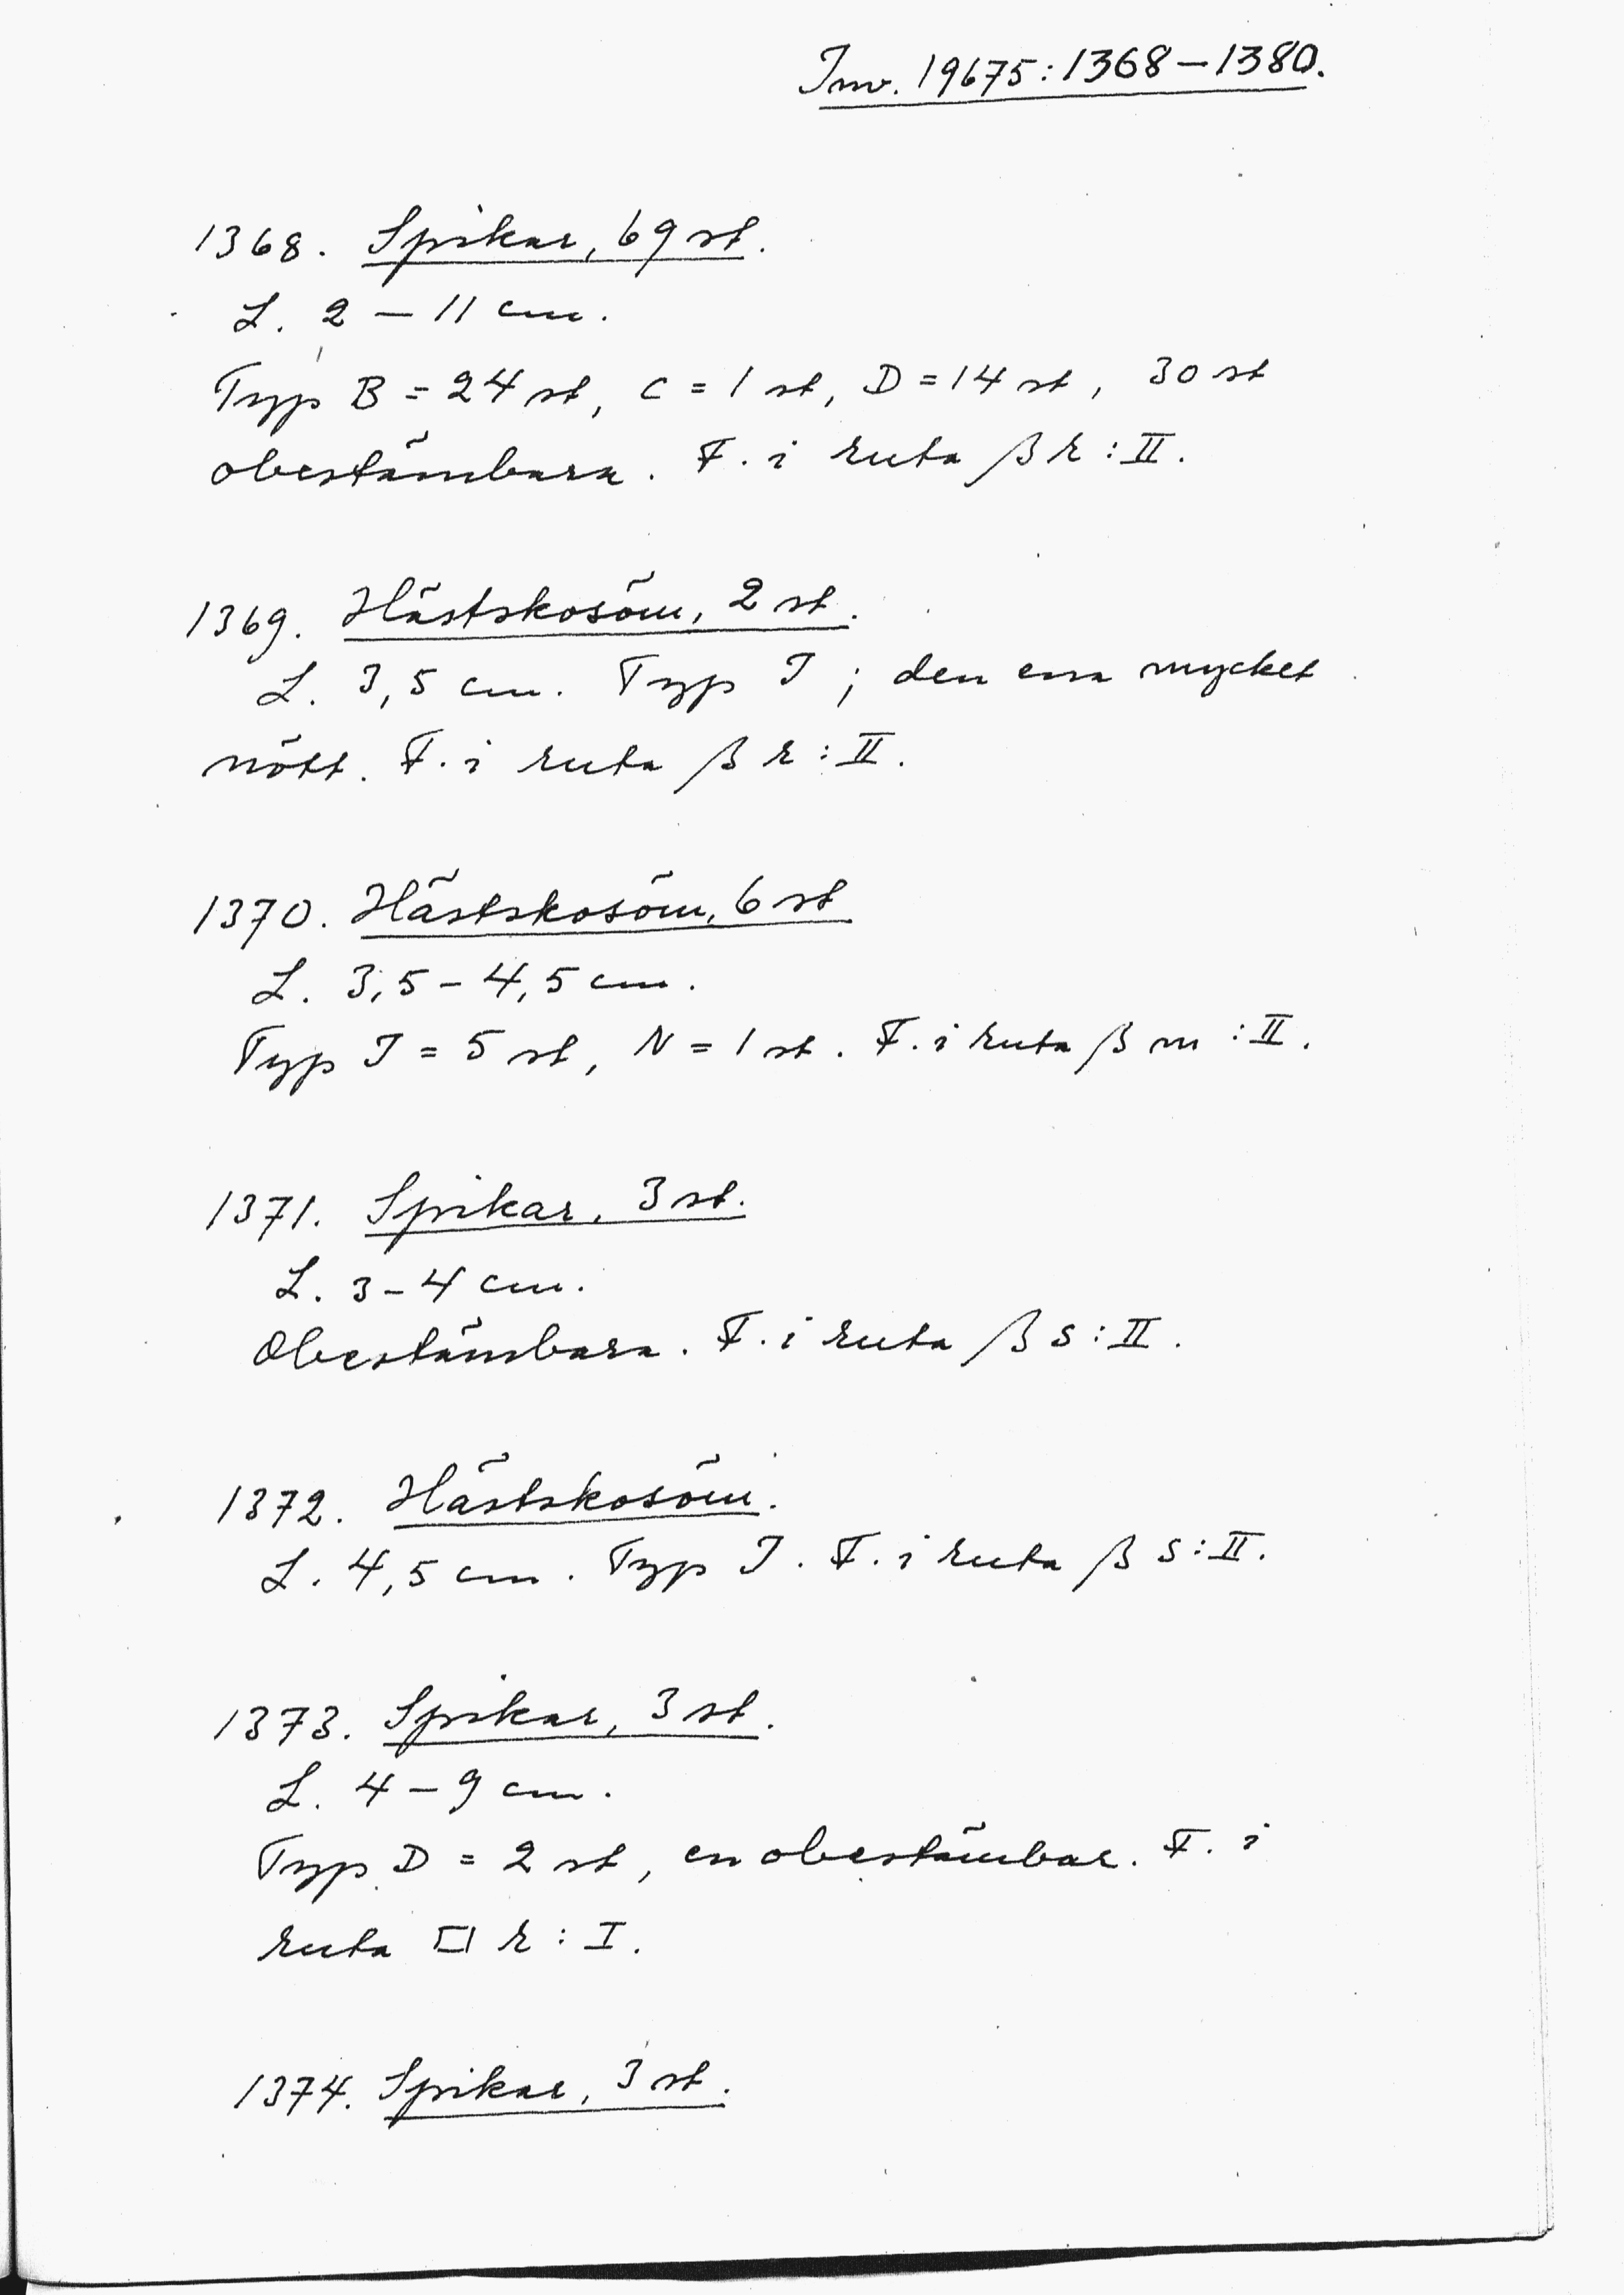 Inv. 19675:1368–1380.
1368. Spikar, 69 st.
L. 2 – 11 cm.
Typ B = 24 st, C = 1 st, D = 14 st, 30 st
obestämbara. F. i ruta β r : II.
1369. Hästskosöm, 2 st.
L. 3,5 cm. Typ I ; den ena mycket
nött. F. i ruta β r : II.
1370. Hästskosöm, 6 st
L. 3,5 – 4,5 cm.
Typ I = 5 st, N = 1 st. F. i ruta β m : II.
1371. Spikar, 3 st.
L. 3 – 4 cm.
Obestämbara. F. i ruta β s : II.
1372. Hästskosöm.
L. 4,5 cm. Typ I. F. i ruta β s : II.
1373. Spikar, 3 st.
L. 4 – 9 cm.
Typ D = 2 st, en obestämbar. F. i
ruta □ r : I.
1374. Spikar, 3 st.